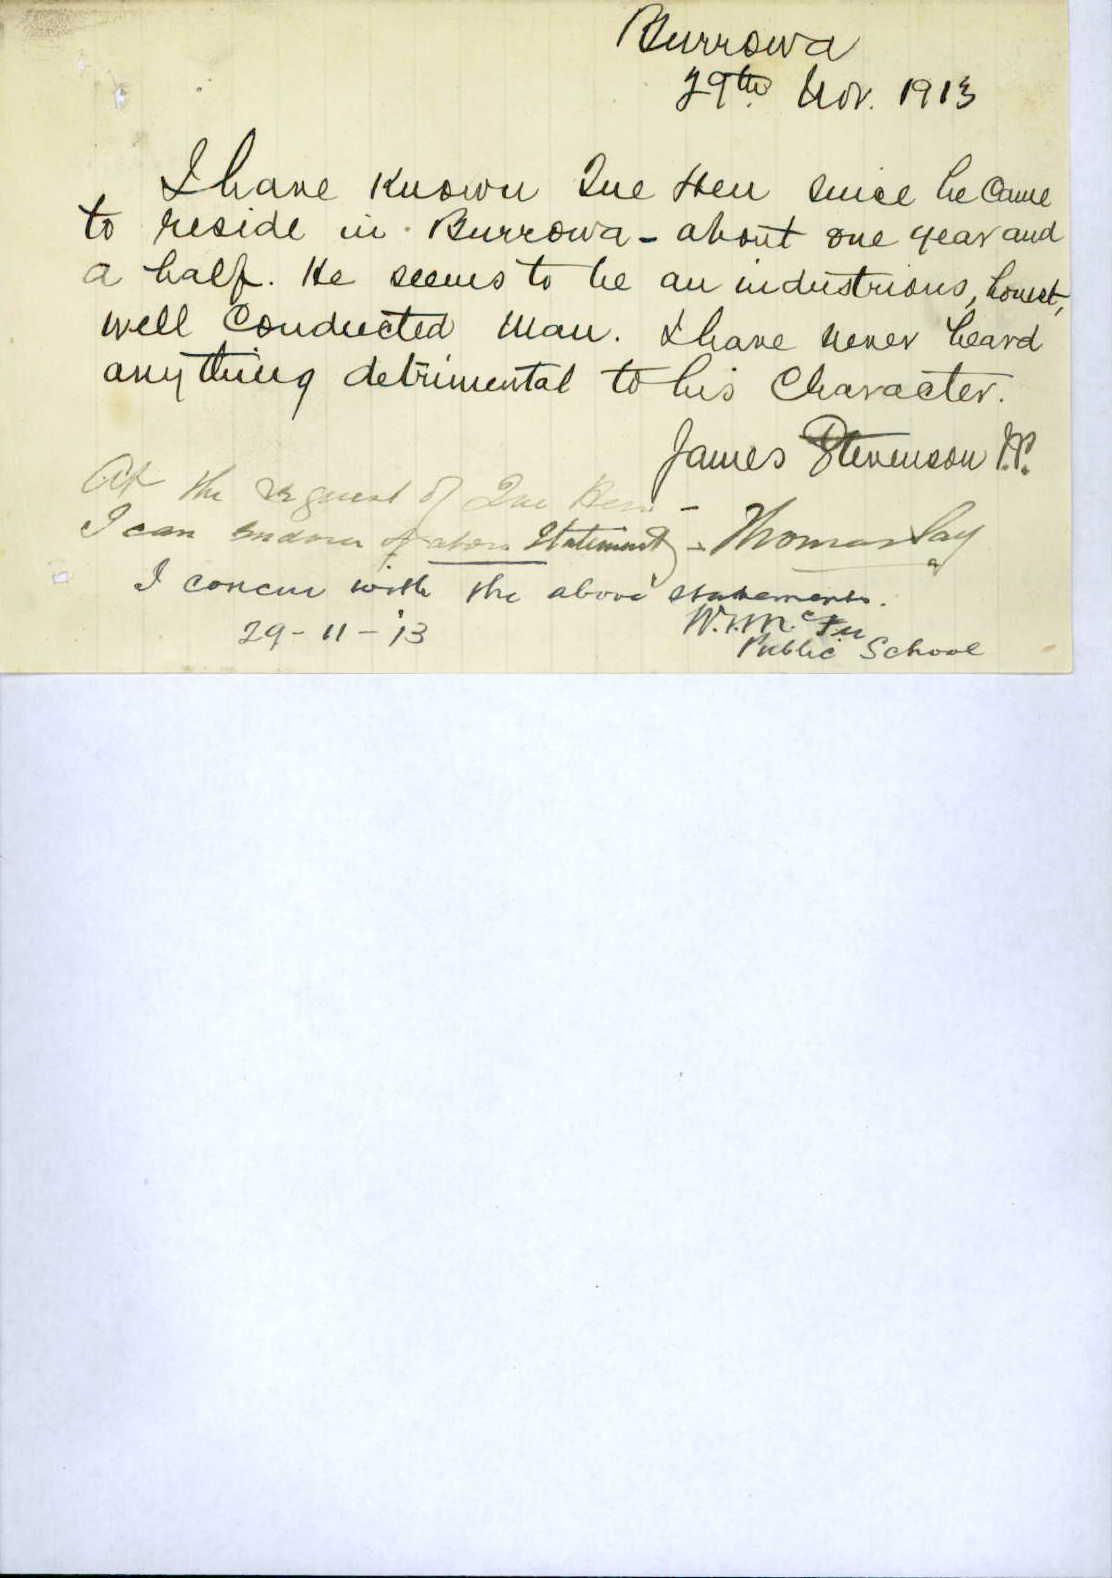 Burrowa
29th Nov. 1913
I have known Que Hen since he came
to reside in Burrowa - about one year and
a half. He seems to be an industrious, honest,
well conducted man. I have never heard
anything detrimental to his character.
James Stevenson J.P.
At the request of Que Hen -
I can endorse above Statement - Thomas
I concur with the above statements.
29-11-'13 W.
Public School